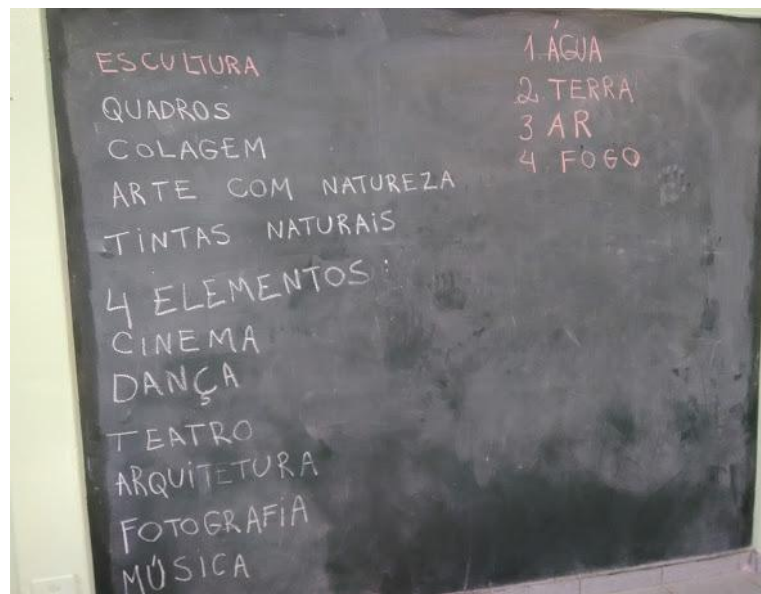 ESCULTURA
QUADROS
COLAGEM
ARTE COM NATUREZA
TINTAS NATURAIS
4 ELEMENTOS:
CINEMA
DANÇA
TEATRO
ARQUITETURA
FOTOGRAFIA
MÚSICA
1 ÁGUA
2. TERRA
3 AR
4. FOGO